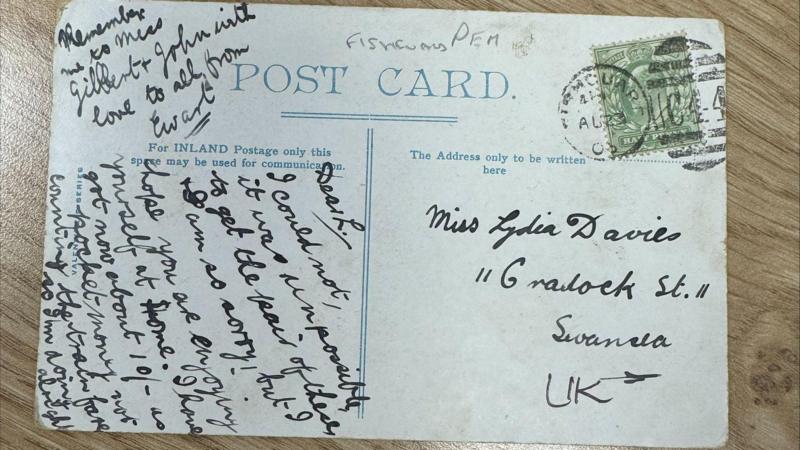 Remember
me to Miss
Gilbert + John with
love to all, from
Ewart
FISHGUARD PEM
POST CARD.
For INLAND Postage only this
space may be used for communication.
The Address only to be written
here
VALENTINES SERIES
Dear L;
I could not,
it was impossible
to get the pair of these
& I am so sorry! but I
hope you are enjoying
yourself at home. I have
got now about 10/- as
pocket money not
counting the train fare
so I'm doing
alright
Miss Lydia Davies
"Cradock St."
Swansea
UK
AU 23